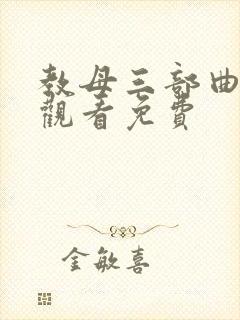 教母三部曲
觀看免費
金敏喜